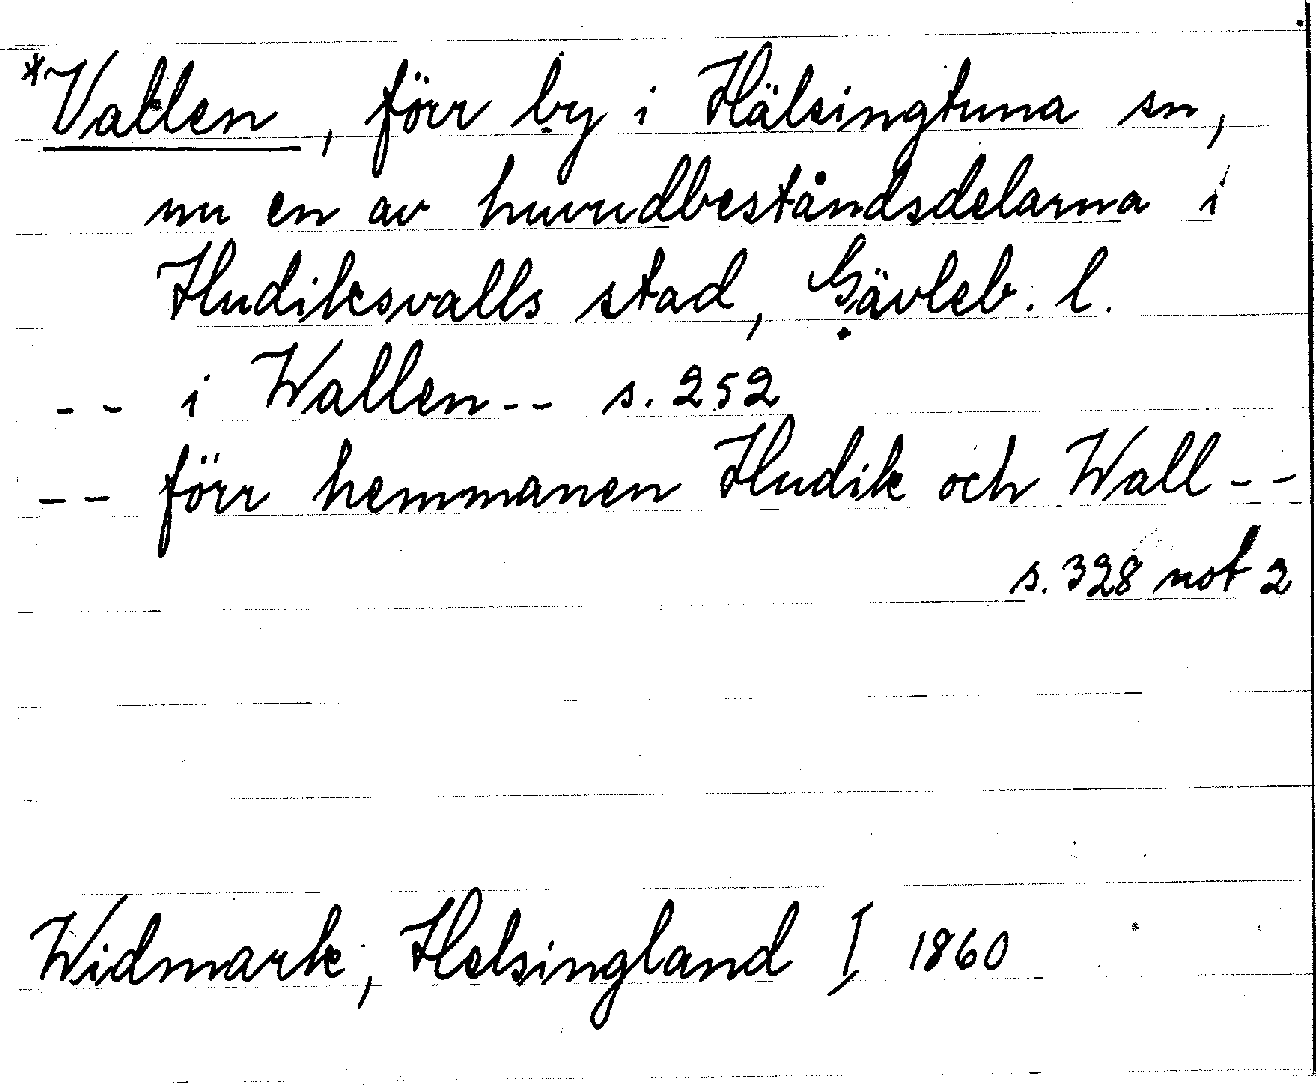 *Vallen, förr by i Hälsingtuna sn,
nu en av huvudbeståndsdelarna i
Hudiksvalls stad, Gävleb. l.
-- i Wallen -- s. 252
-- förr hemmanen Hudik och Wall --
s. 328 not 2
Widmark, Helsingland I 1860